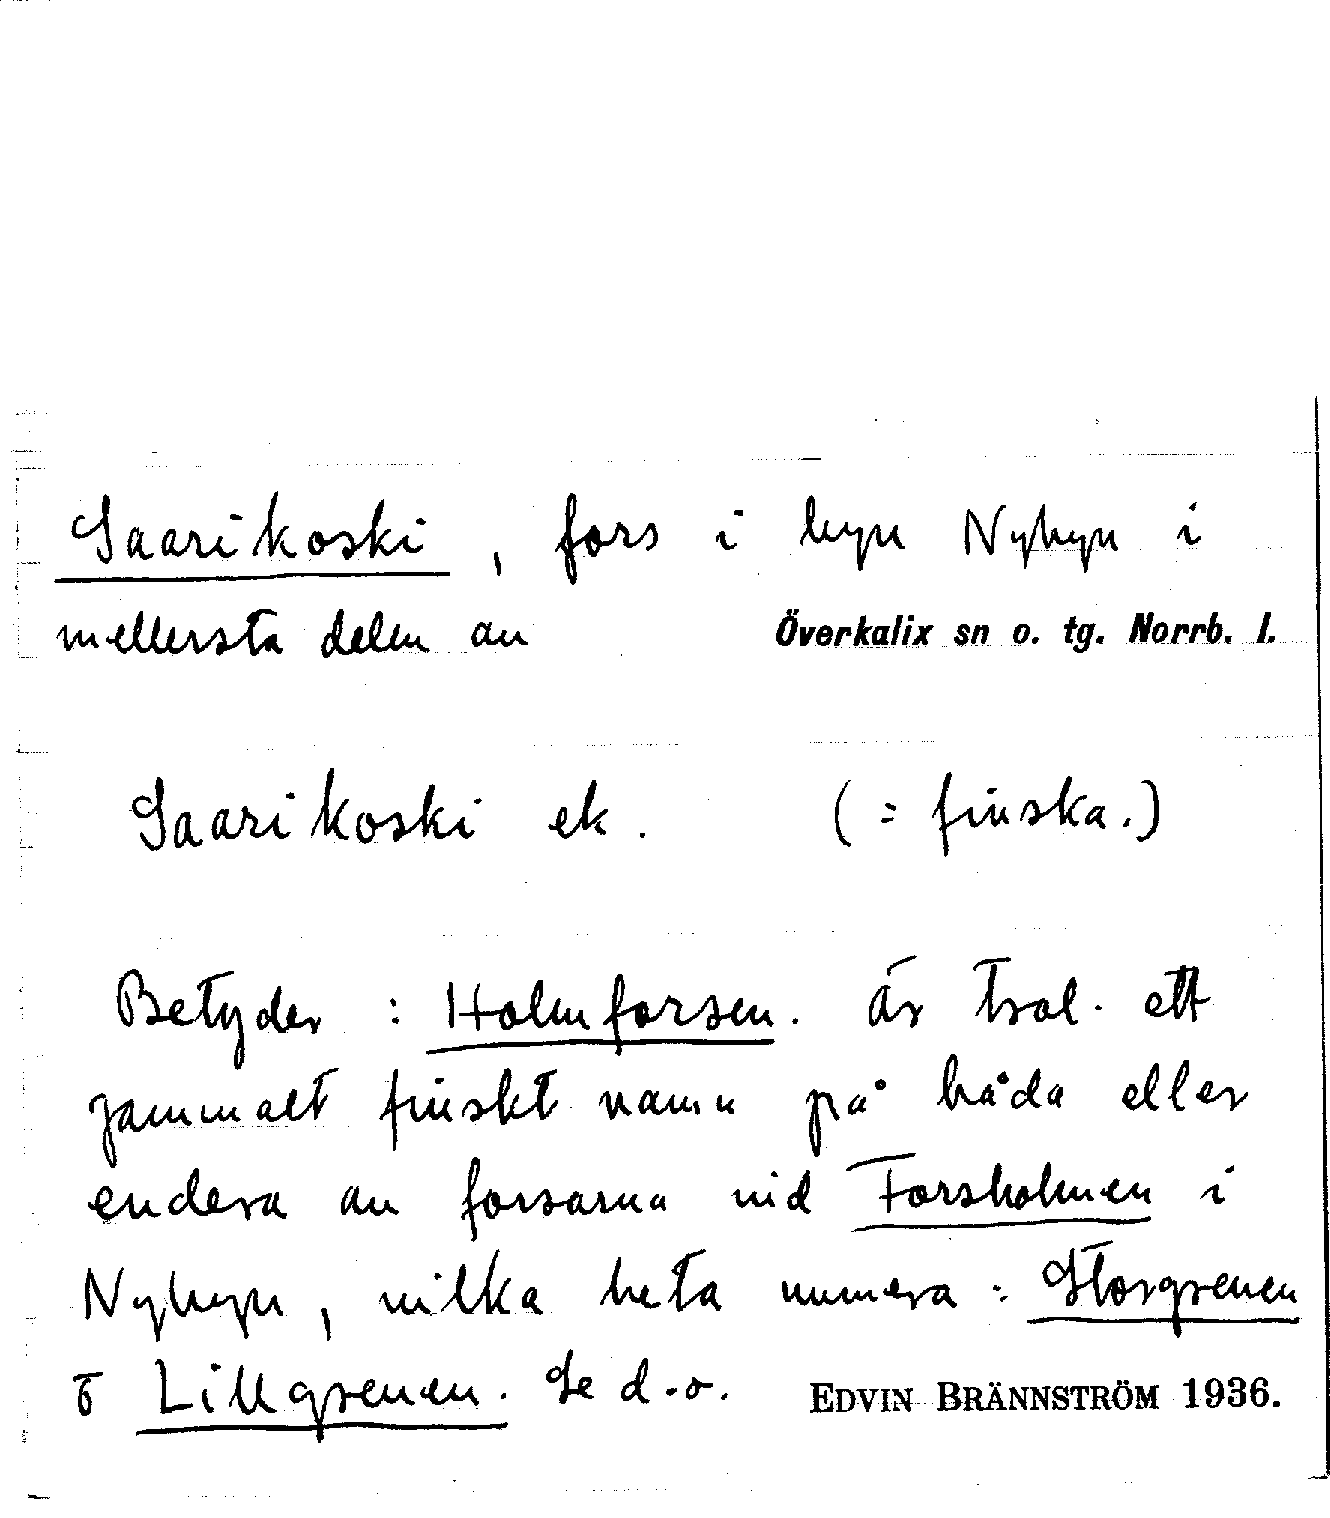 Saarikoski, fors i byn Nybyn i
mellersta delen av Överkalix sn o. tg. Norrb. l.
Saarikoski ek. (= finska.)
Betyder : Holmforsen. Är trol. ett
gammalt finskt namn på båda eller
endera av forsarna vid Forsholmen i
Nybyn, vilka heta numera : Storgrenen
o Lillgrenen. Se d.o. EDVIN BRÄNNSTRÖM 1936.